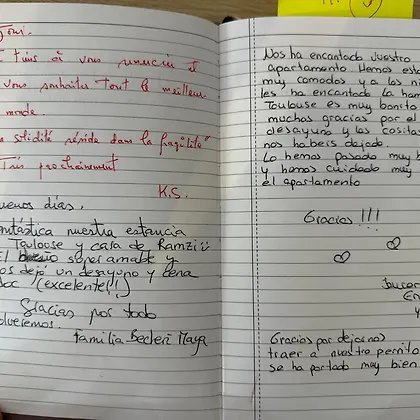 tiens à vous remercier et
vous souhaiter tout le meilleur
monde.
solidité réside dans la fragilité"
Très prochainement
K.S.
buenos días.
fantástica nuestra estancia
Toulouse y casa de Ramzi
El super amable y
nos dejó un desayuno y cena
doc (excelente!!)
Gracias por todo
volveremos.
Familia Becleri Maya
Nos ha encantado vuestro
apartamento Hemos esta
muy comodos y a los ni
les ha encantado la ham
Toulouse es muy bonito
muchas gracias por el
desayuno y las cositas
nos habeis dejado.
Lo hemos pasado muy b
y hemos cuidado muy
el apartamento
Gracias !!!
Gracias por dejarnos
traer a nuestro perrito
se ha portado muy bien